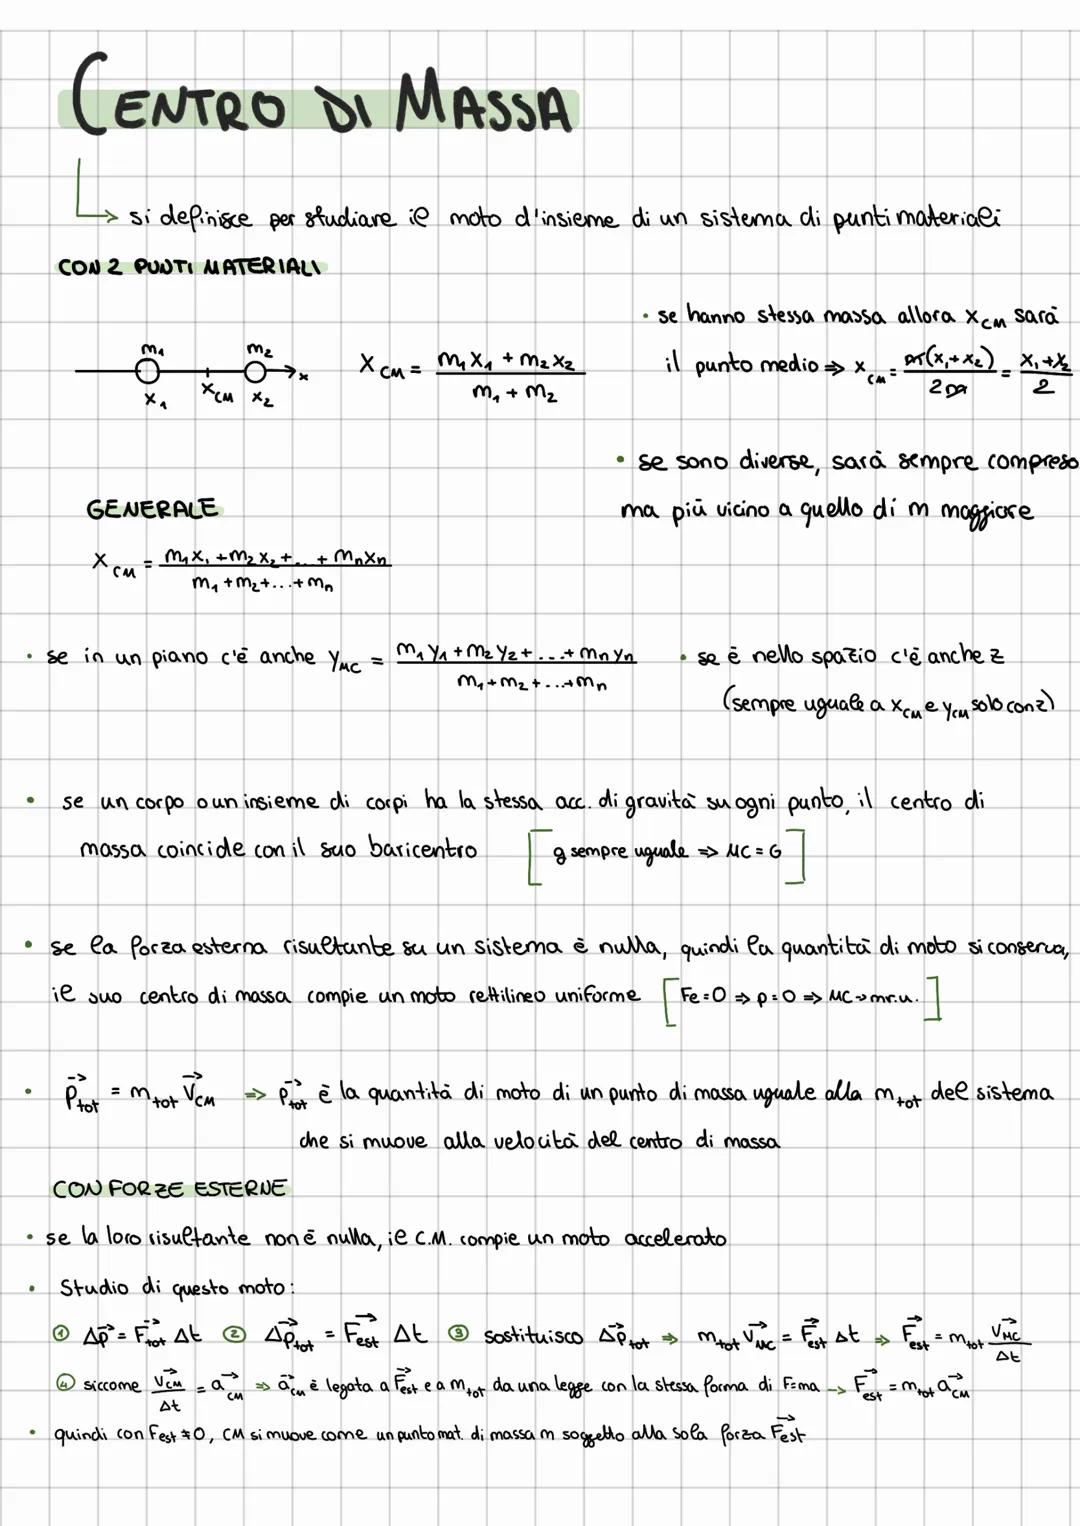 CENTRO DI MASSA
si definisce per studiare il moto d'insieme di un sistema di punti materiali
CON 2 PUNTI MATERIALI
m₁ m₂
x₁ x_CM x₂ x
x_CM = (m₁x₁ + m₂x₂) / (m₁ + m₂)
• se hanno stessa massa allora x_CM sarà
il punto medio ⇒ x_CM = m(x₁+x₂) / 2m = (x₁+x₂) / 2
• se sono diverse, sarà sempre compreso
ma più vicino a quello di m maggiore
GENERALE
x_CM = (m₁x₁ + m₂x₂ + ... + mₙxₙ) / (m₁ + m₂ + ... + mₙ)
• se in un piano c'è anche y_MC = (m₁y₁ + m₂y₂ + ... + mₙyₙ) / (m₁ + m₂ + ... + mₙ)
• se è nello spazio c'è anche z
(sempre uguale a x_CM e y_CM solo con z)
• se un corpo o un insieme di corpi ha la stessa acc. di gravità su ogni punto, il centro di
massa coincide con il suo baricentro [g sempre uguale ⇒ MC = G]
• se la forza esterna risultante su un sistema è nulla, quindi la quantità di moto si conserva,
il suo centro di massa compie un moto rettilineo uniforme [Fe=0 ⇒ p=0 ⇒ MC → m.r.u.]
• p⃗_tot = m_tot v⃗_CM ⇒ p⃗_tot è la quantità di moto di un punto di massa uguale alla m_tot del sistema
che si muove alla velocità del centro di massa
CON FORZE ESTERNE
• se la loro risultante non è nulla, il C.M. compie un moto accelerato
• Studio di questo moto:
① Δp⃗ = F⃗_tot Δt ② Δp⃗_tot = F⃗_est Δt ③ sostituisco Δp⃗_tot ⇒ m_tot v⃗_MC = F⃗_est Δt ⇒ F⃗_est = m_tot v⃗_MC / Δt
④ siccome v⃗_CM / Δt = a⃗_CM ⇒ a⃗_CM è legata a F⃗_est e a m_tot da una legge con la stessa forma di F=ma → F⃗_est = m_tot a⃗_CM
• quindi con Fest ≠ 0, CM si muove come un punto mat. di massa m soggetto alla sola forza F⃗est